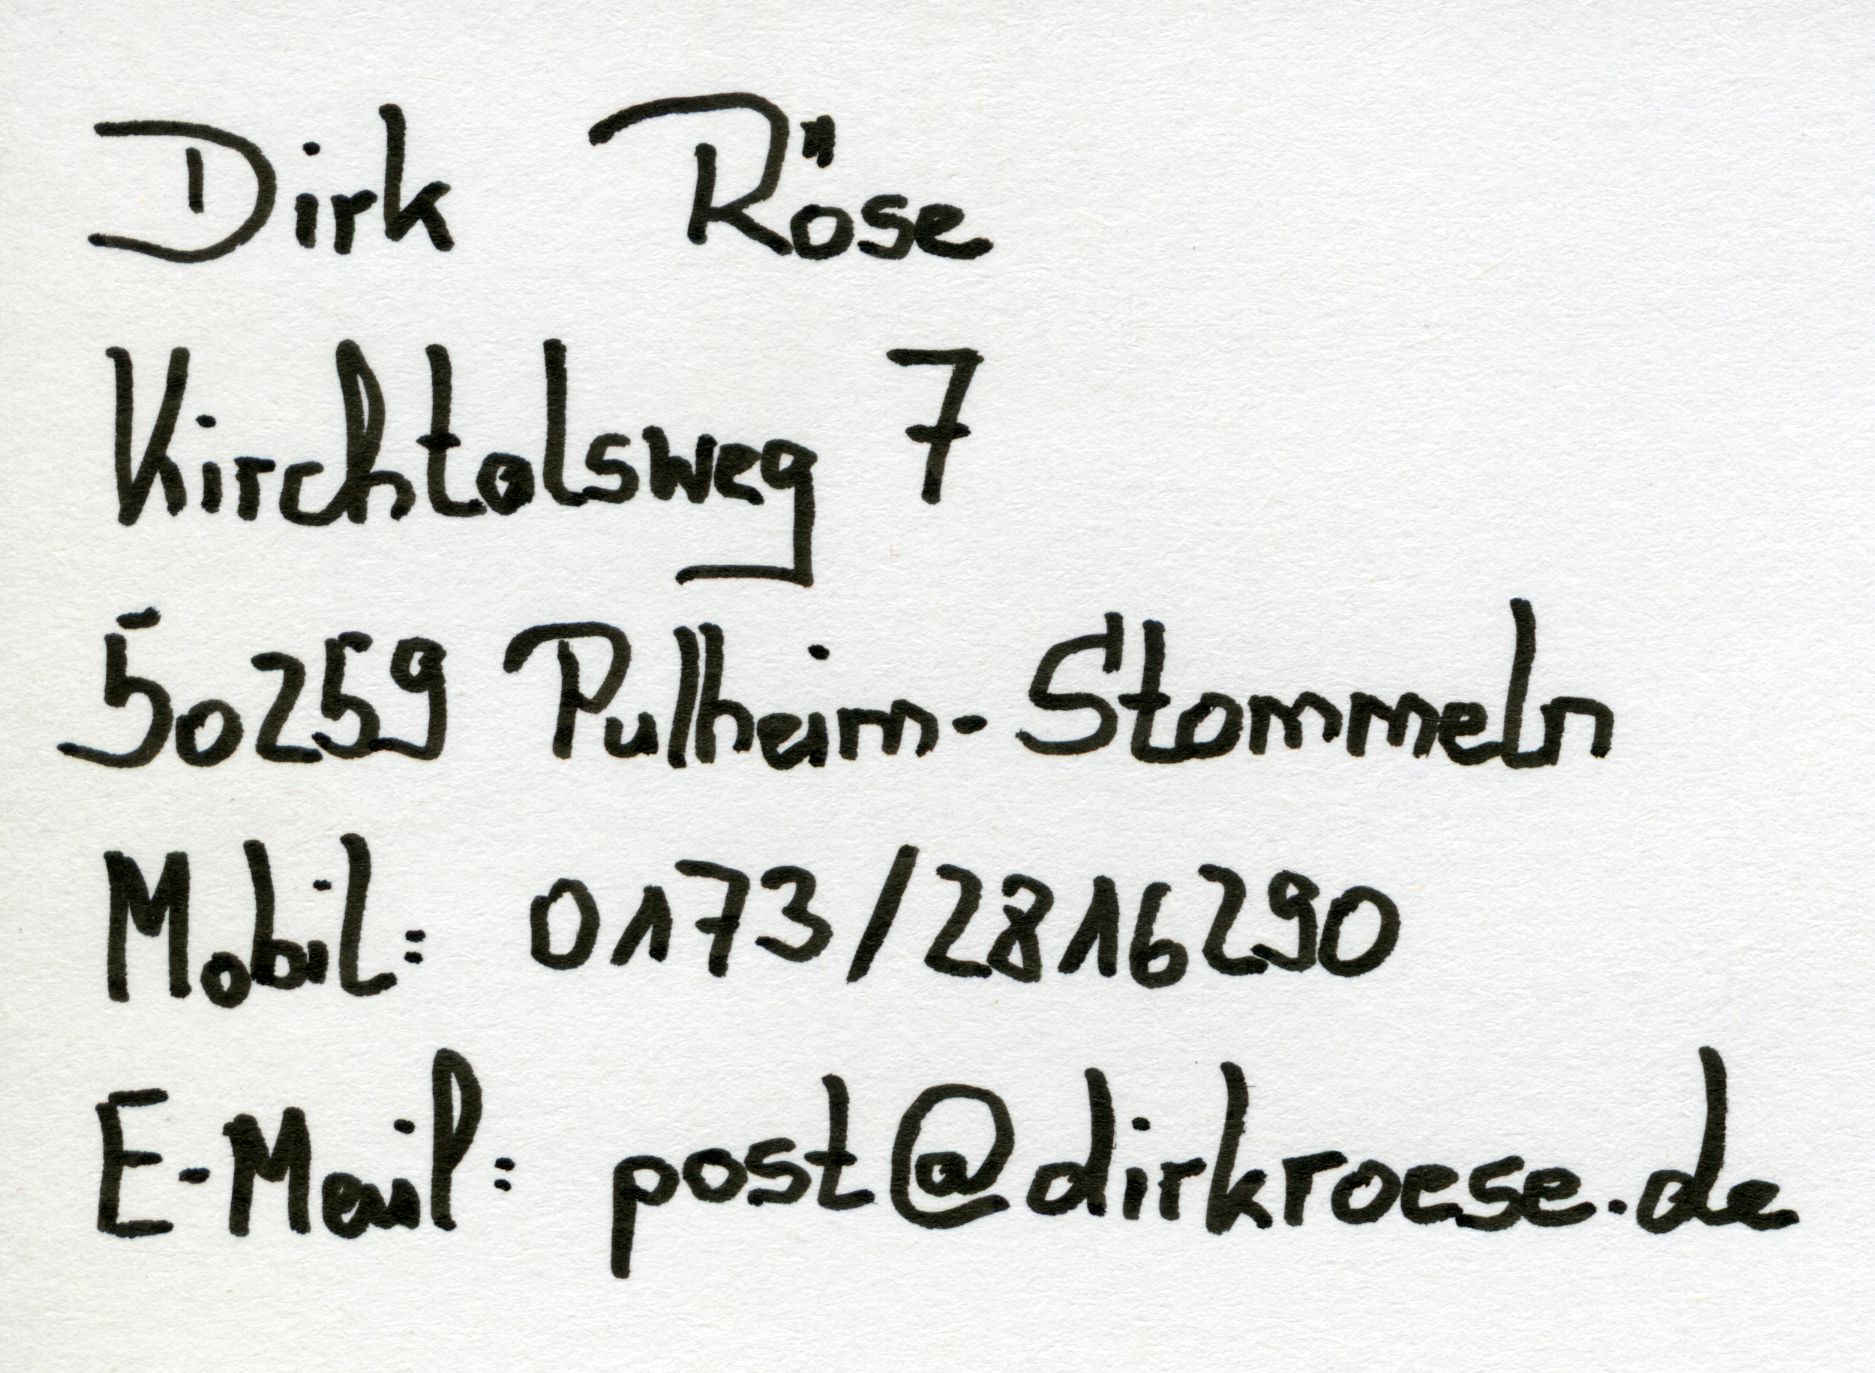 Dirk Röse
Kirchtalsweg 7
50259 Pulheim-Stommeln
Mobil: 0173/2816290
E-Mail: post@dirkroese.de